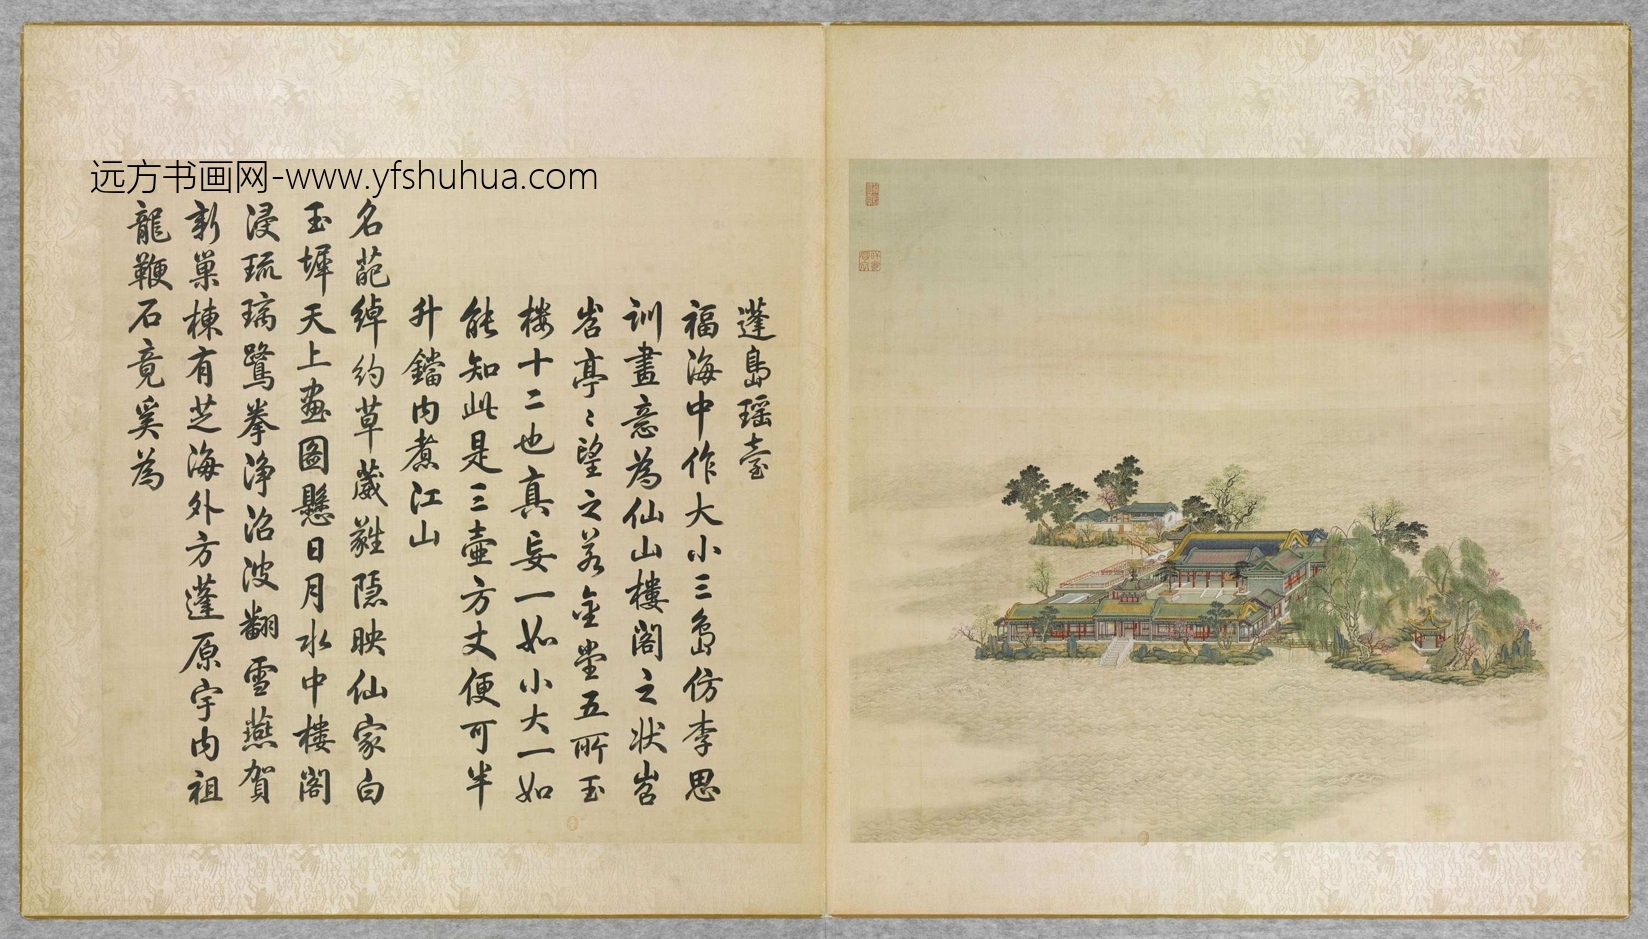 远方书画网-www.yfshuhua.com
蓬島瑶臺
福海中作大小三島仿李思
訓畫意為仙山樓閣之状岧
岧亭〻望之若金堂五所玉
楼十二也真妄一如小大一如
能知此是三壺方丈便可半
升鐺内煮江山
名葩綽約草葳蕤隱映仙家白
玉墀天上畫圖懸日月水中樓閣
浸琉璃鷺拳淨沼波翻雪燕賀
新巢棟有芝海外方蓬原宇内祖
龍鞭石竟奚為